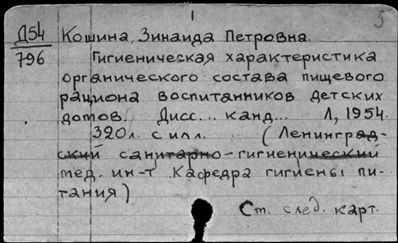 5
Д54 Кошина, Зинаида Петровна.
796 Гигиеническая характеристика
органического состава пищевого
рациона воспитанников детских
домов. Дисс... канд... Л, 1954.
320л. с илл. (Ленинград-
ский санитарно-гигиенический
мед. ин-т Кафедра гигиены пи-
тания)
См. след. карт.